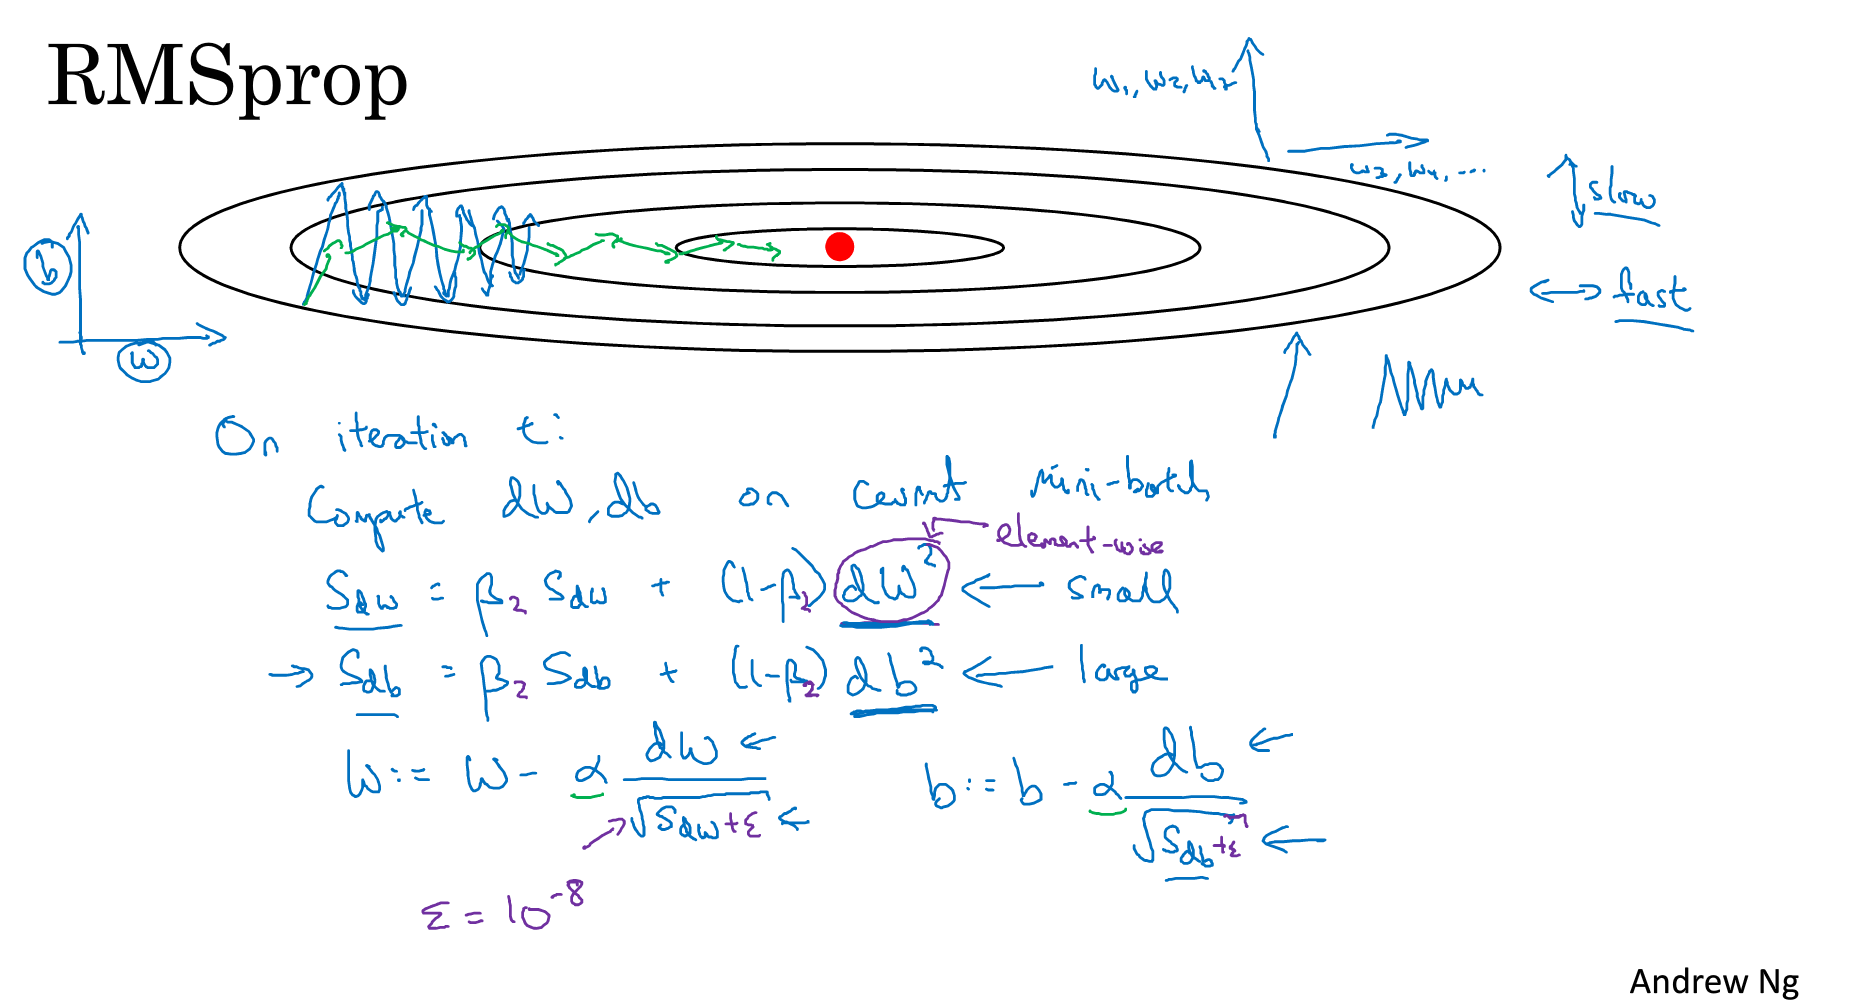 RMSprop
w₁, w₂, w₇
w₃, w₄, ...
slow
b
fast
w
On iteration t:
Compute dW, db on current mini-batch
element-wise
S_dw = β₂ S_dw + (1-β₂) dW² ← small
→ S_db = β₂ S_db + (1-β₂) db² ← large
W := W - α dW / √(S_dw + ε) ← b := b - α db / √(S_db + ε) ←
ε = 10⁻⁸
Andrew Ng